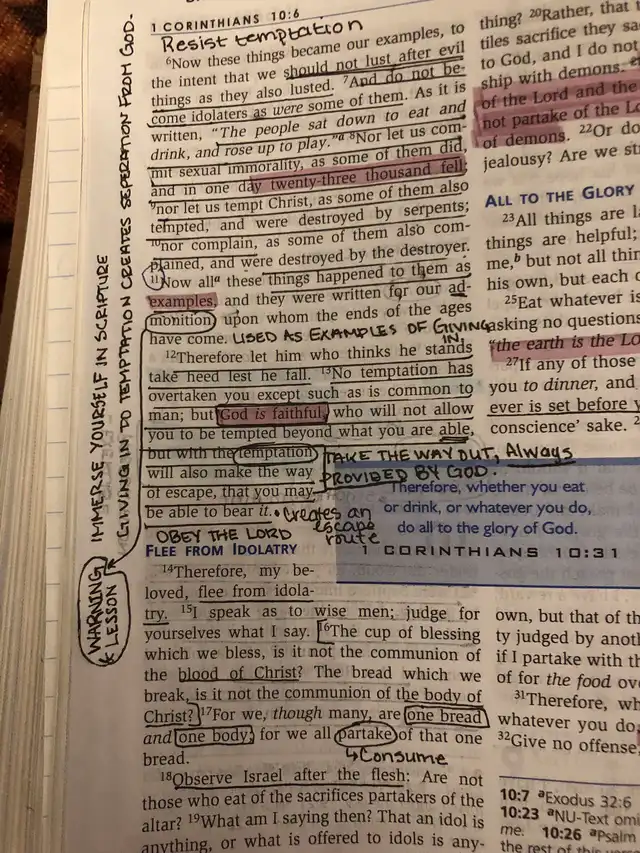 1 CORINTHIANS 10:6
Resist temptation
⁶Now these things became our examples, to
the intent that we should not lust after evil
things as they also lusted. ⁷And do not be-
come idolaters as were some of them. As it is
written, “The people sat down to eat and
drink, and rose up to play.”ᵃ ⁸Nor let us com-
mit sexual immorality, as some of them did,
and in one day twenty-three thousand fell;
⁹nor let us tempt Christ, as some of them also
tempted, and were destroyed by serpents;
¹⁰nor complain, as some of them also com-
plained, and were destroyed by the destroyer.
¹¹Now allᵃ these things happened to them as
examples, and they were written for our ad-
monition, upon whom the ends of the ages
have come. USED AS EXAMPLES OF GIVING
IN.
¹²Therefore let him who thinks he stands
take heed lest he fall. ¹³No temptation has
overtaken you except such as is common to
man; but God is faithful, who will not allow
you to be tempted beyond what you are able,
but with the temptation
will also make the way
of escape, that you may
be able to bear it.
TAKE THE WAY OUT, Always
PROVIDED BY GOD.
• Creates an
escape
route
OBEY THE LORD
FLEE FROM IDOLATRY
¹⁴Therefore, my be-
loved, flee from idola-
try. ¹⁵I speak as to wise men; judge for
yourselves what I say. ¹⁶The cup of blessing
which we bless, is it not the communion of
the blood of Christ? The bread which we
break, is it not the communion of the body of
Christ? ¹⁷For we, though many, are one bread
and one body; for we all partake of that one
bread.
↳Consume
¹⁸Observe Israel after the flesh: Are not
those who eat of the sacrifices partakers of the
altar? ¹⁹What am I saying then? That an idol is
anything, or what is offered to idols is any-
IMMERSE YOURSELF IN SCRIPTURE
GIVING IN TO TEMPTATION CREATES SEPERATION FROM GOD.
WARNING
& LESSON
thing? ²⁰Rather, that
tiles sacrifice they sa
to God, and I do not
ship with demons.
of the Lord and the
not partake of the L
of demons. ²²Or do
jealousy? Are we st
ALL TO THE GLORY
²³All things are la
things are helpful;
me,ᵇ but not all thin
his own, but each o
²⁵Eat whatever is
asking no questions
“the earth is the Lo
²⁷If any of those
you to dinner, and
ever is set before y
conscience’ sake.
Therefore, whether you eat
or drink, or whatever you do,
do all to the glory of God.
1 CORINTHIANS 10:31
own, but that of th
ty judged by anoth
if I partake with th
of for the food ov
³¹Therefore, wh
whatever you do,
³²Give no offense,
10:7 ᵃExodus 32:6
10:23 ᵃNU-Text omi
me. 10:26 ᵃPsalm
the rest of this